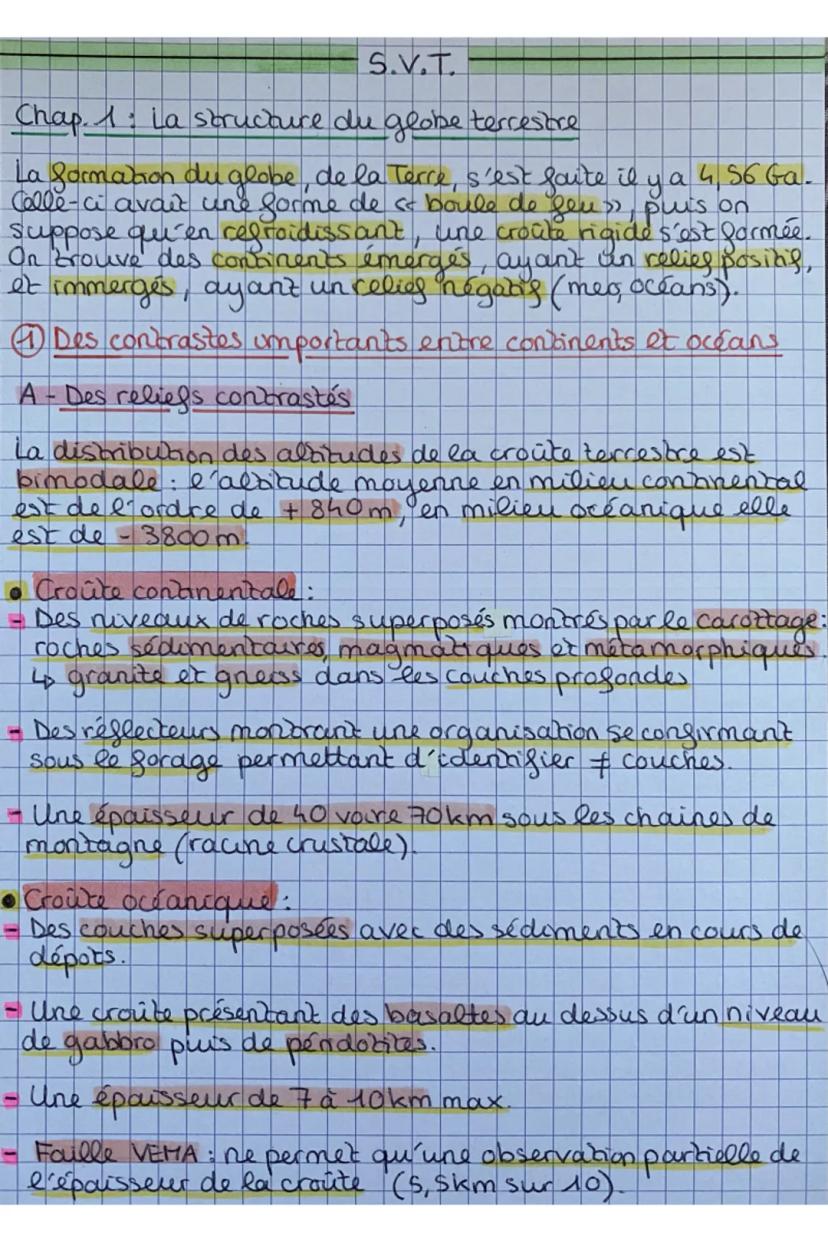 S.V.T.
Chap. 1 : La structure du globe terrestre
La formation du globe, de la Terre, s'est faite il y a 4,56 Ga.
Celle-ci avait une forme de « boule de feu », puis on
suppose qu'en refroidissant, une croûte rigide s'est formée.
On trouve des continents émergés, ayant un relief positif,
et immergés, ayant un relief négatif (mer, océans).
① Des contrastes importants entre continents et océans
A - Des reliefs contrastés
La distribution des altitudes de la croûte terrestre est
bimodale : l'altitude moyenne en milieu continental
est de l'ordre de + 840 m, en milieu océanique elle
est de - 3800 m
• Croûte continentale :
- Des niveaux de roches superposés montrés par le carottage :
roches sédimentaires, magmatiques et métamorphiques.
↳ granite et gneiss dans les couches profondes
- Des réflecteurs montrant une organisation se confirmant
sous le forage permettant d'identifier ≠ couches.
- Une épaisseur de 40 voire 70 km sous les chaines de
montagne (racine crustale).
• Croûte océanique :
- Des couches superposées avec des sédiments en cours de
dépots.
- Une croûte présentant des basaltes au dessus d'un niveau
de gabbro puis de péridotites.
- Une épaisseur de 7 à 10 km max.
- Faille VEMA : ne permet qu'une observation partielle de
l'épaisseur de la croûte (5,5km sur 10).